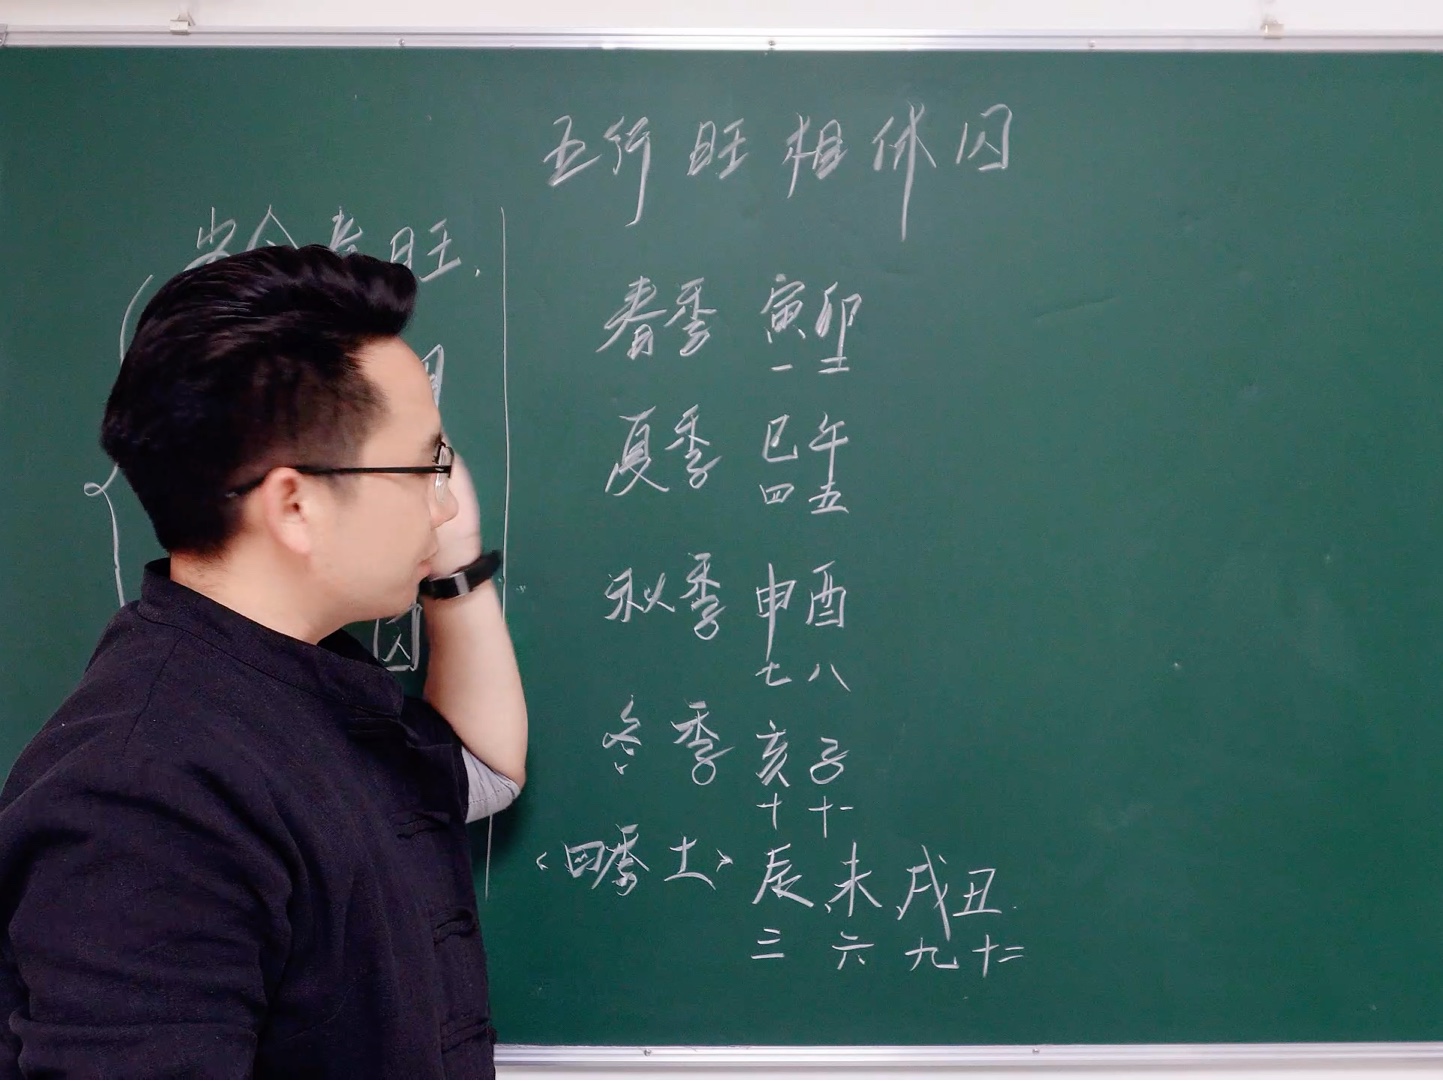 五行旺相休囚
当令者旺.
囚
春季 寅卯
一 二
夏季 巳午
四 五
秋季 申酉
七 八
冬季 亥子
十 十一
<四季土> 辰、未、戌丑.
三 六 九 十二